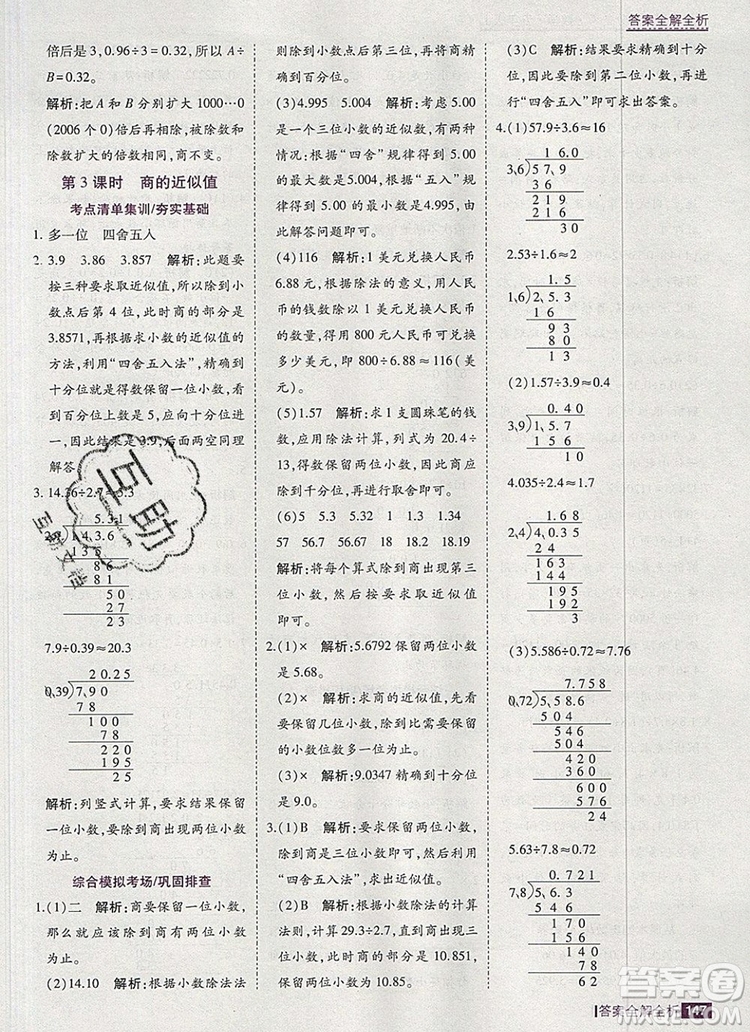 答案全解全析
倍后是 3,0.96÷3=0.32。所以 A÷
B=0.32。
解析:把 A 和 B 分别扩大 1000…0
(2006 个 0)倍后再相除,被除数和
除数扩大的倍数相同,商不变。
第 3 课时 商的近似值
考点清单集训/夯实基础
1. 多一位 四舍五人
2. 3.9 3.86 3.857 解析:此题要
按三种要求取近似值,所以除到小
数点后第 4 位,此时商的部分是
3.8571,再根据求小数的近似值的
方法,利用“四舍五入法”,精确到
十分位就是得数保留一位小数,看
看到百分位上是 5,应向十分位进
一,结果是 3.9,后面两空同理
解答。
3. 14.36÷2.7≈5.3
5.31
2,7)14,3.6
135
86
81
50
27
23
7.9÷0.39≈20.3
20.25
0,39)7,90
78
100
78
220
195
25
解析:列竖式计算,要求结果保留
一位小数,要除到商出现两位小数
为止。
综合模拟考场/巩固排查
1. (1)二 解析:商要保留一位小数,
那么就应该除到商有两位小数。
(2)14.10 解析:根据小数除法法
则除到小数点后第三位,再精确
到百分位。
(3)4.995 5.004 解析:考虑 5.00
是一个三位小数的近似数,有两种
情况:根据“四舍”规律得到 5.00
的最大数是 5.004,根据“五入”规
律得到 5.00 的最小数是 4.995,由
此解答问题即可。
(4)116 解析:1 美元兑换人民币
6.88 元,根据除法的意义,用人民
币的钱数除以 1 美元兑换人民币
的数量,得出 800 元人民币可兑换
多少美元,即 800÷6.88≈116(美
元)。
(5)11 解析:求 1 支圆珠笔的钱
数,应用除法计算,列式为 20.4÷
13,得数保留两位小数,商还应继
续进行取舍即可。
(6)5 5.3 5.32 1 1.3 1.34
57 56.7 56.67 18 18.2 18.19
解析:将每个算式除到商出现第三
位小数,再根据要求四舍五入
即可。
2. (1)× 解析:5.6792 保留两位小数
是 5.68。
(2)× 解析:求商的近似值,先看
需要保留几位小数,除到比需要保
留的小数位数多一位为止。
(3)× 解析:9.0347 精确到十分位
是 9.0。
3. (1)B 解析:要求保留两位小数,
计算时要除到千分位,然后利用
“四舍五入法”,即可得出答案。
(2)B 解析:根据小数除法的计算
法则,计算 29.3÷2.7,除到商出现
三位小数,此时商的部分是 10.851,
保留两位小数为 10.85。
(3)C 解析:结果要求精确到十分
位,因此要除到第二位小数,再进
行“四舍五入”即可求出答案。
4. (1)57.9÷3.6≈16
16.0
3,6)57,9
36
219
216
30
2.53÷1.6≈2
1.5
1,6)2,5.3
16
93
80
13
(2)1.57÷3.9≈0.4
0.40
3,9)1,5.7
156
10
4.035÷2.4≈2
1.68
2,4)4,0.35
24
163
144
195
192
3
(3)5.586÷0.72≈7.76
7.758
0,72)5,58.6
504
546
504
420
360
600
576
24
5.63÷7.8≈0.72
0.721
7,8)5,6.3
546
170
156
140
78
62
互助
互助文档
答案圈
MXQE.COM
答案全解全析 147